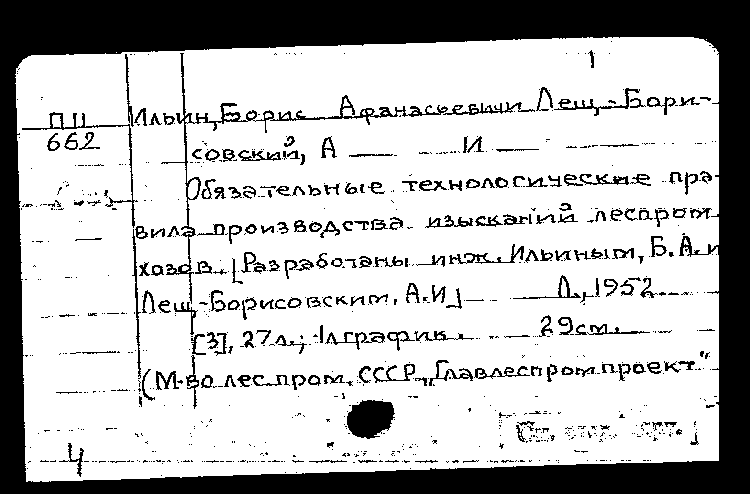 1
ПII Ильин, Борис Афанасьевичи Лещ,-Бори-
662 совский, А И
Обязательные технологические пра-
вила производства изысканий леспром
хозов. [Разработаны инж. Ильиным, Б.А. и
Лещ,-Борисовским, А.И] Л., 1952
[3], 27л.; 1л график. 29см.
(М-во лес.пром. СССР „Главлеспромпроект“
Ц